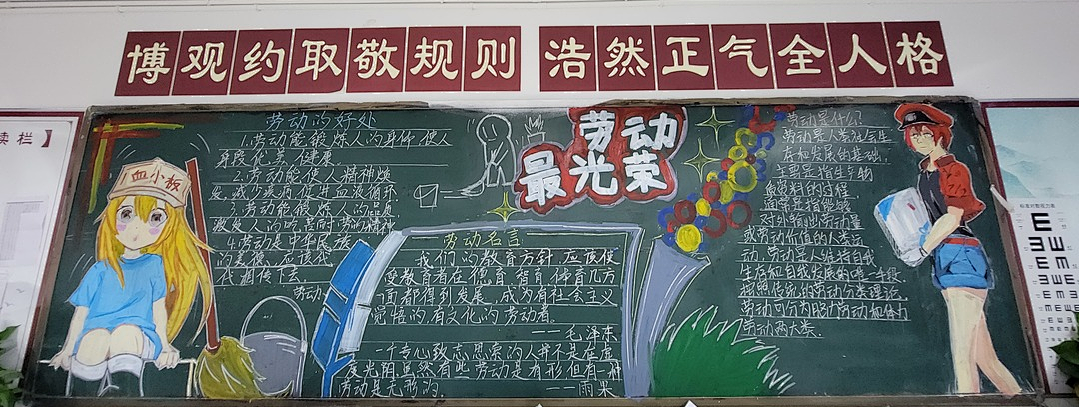 博观约取敬规则 浩然正气全人格
读栏】
血小板
劳动的好处
1.劳动能锻炼人的身体,使人
身段优美,健康.
2.劳动能使人精神焕
发,减少疾病,促进血液循环.
3.劳动能锻炼人的品质
激发人的吃苦耐劳的精神
4.劳动是中华民族
的美德,应该代
代相传下去.
劳动
劳动
最光荣
劳动名言
我们的教育方针,应该使
受教育者在德育智育体育几方
面都得到发展,成为有社会主义
觉悟的有文化的劳动者.
——毛泽东
一个专心致志思索的人并不是在虚
度光阴.虽然有些劳动是有形但有一种
劳动是无形的.
——雨果
劳动是什么?
劳动是人类社会生
存和发展的基础.
主要是指生产物
质资料的过程
通常是指能够
对外输出劳动量
或劳动价值的人类运
动,劳动是人维持自我
生存和自我发展的唯一手段.
按照传统的劳动分类理论,
劳动可分为脑力劳动和体力
劳动两大类.
标准对数视力表